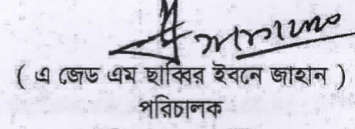 ( এ জেড এম ছাব্বির ইবনে জাহান )
পরিচালক